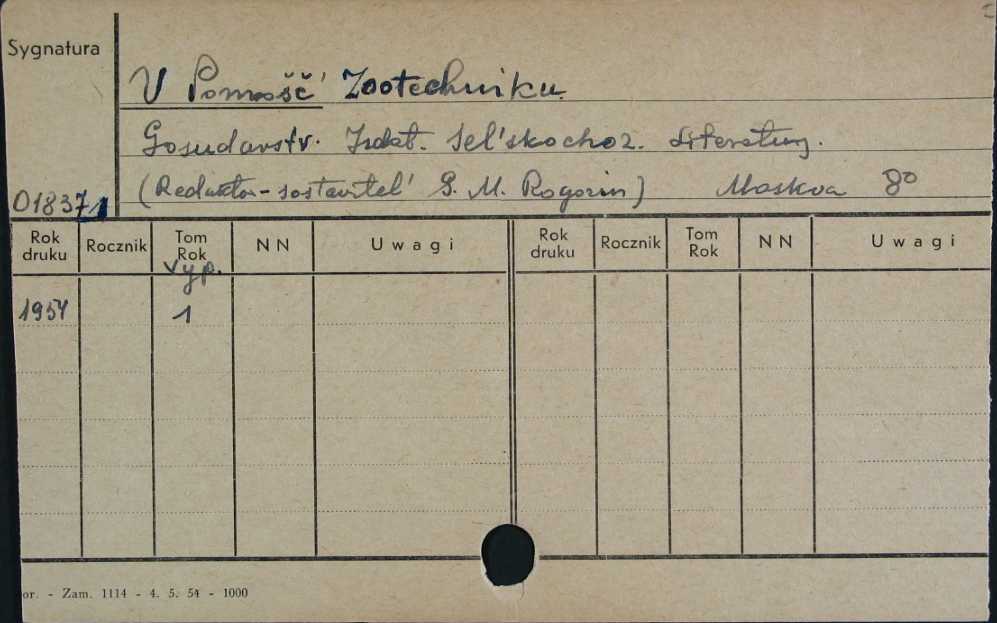 Sygnatura
V Pomošč' Zootechniku.
Gosudarstv. Izdat. Sel'skochoz. Literatury.
(Redaktor-sostavitel' G. M. Rogorin) Moskva 8°
018371
Rok druku Rocznik Tom Rok NN Uwagi Rok druku Rocznik Tom Rok NN Uwagi
vyp.
1954 1
or. - Zam. 1114 - 4. 5. 54 - 1000